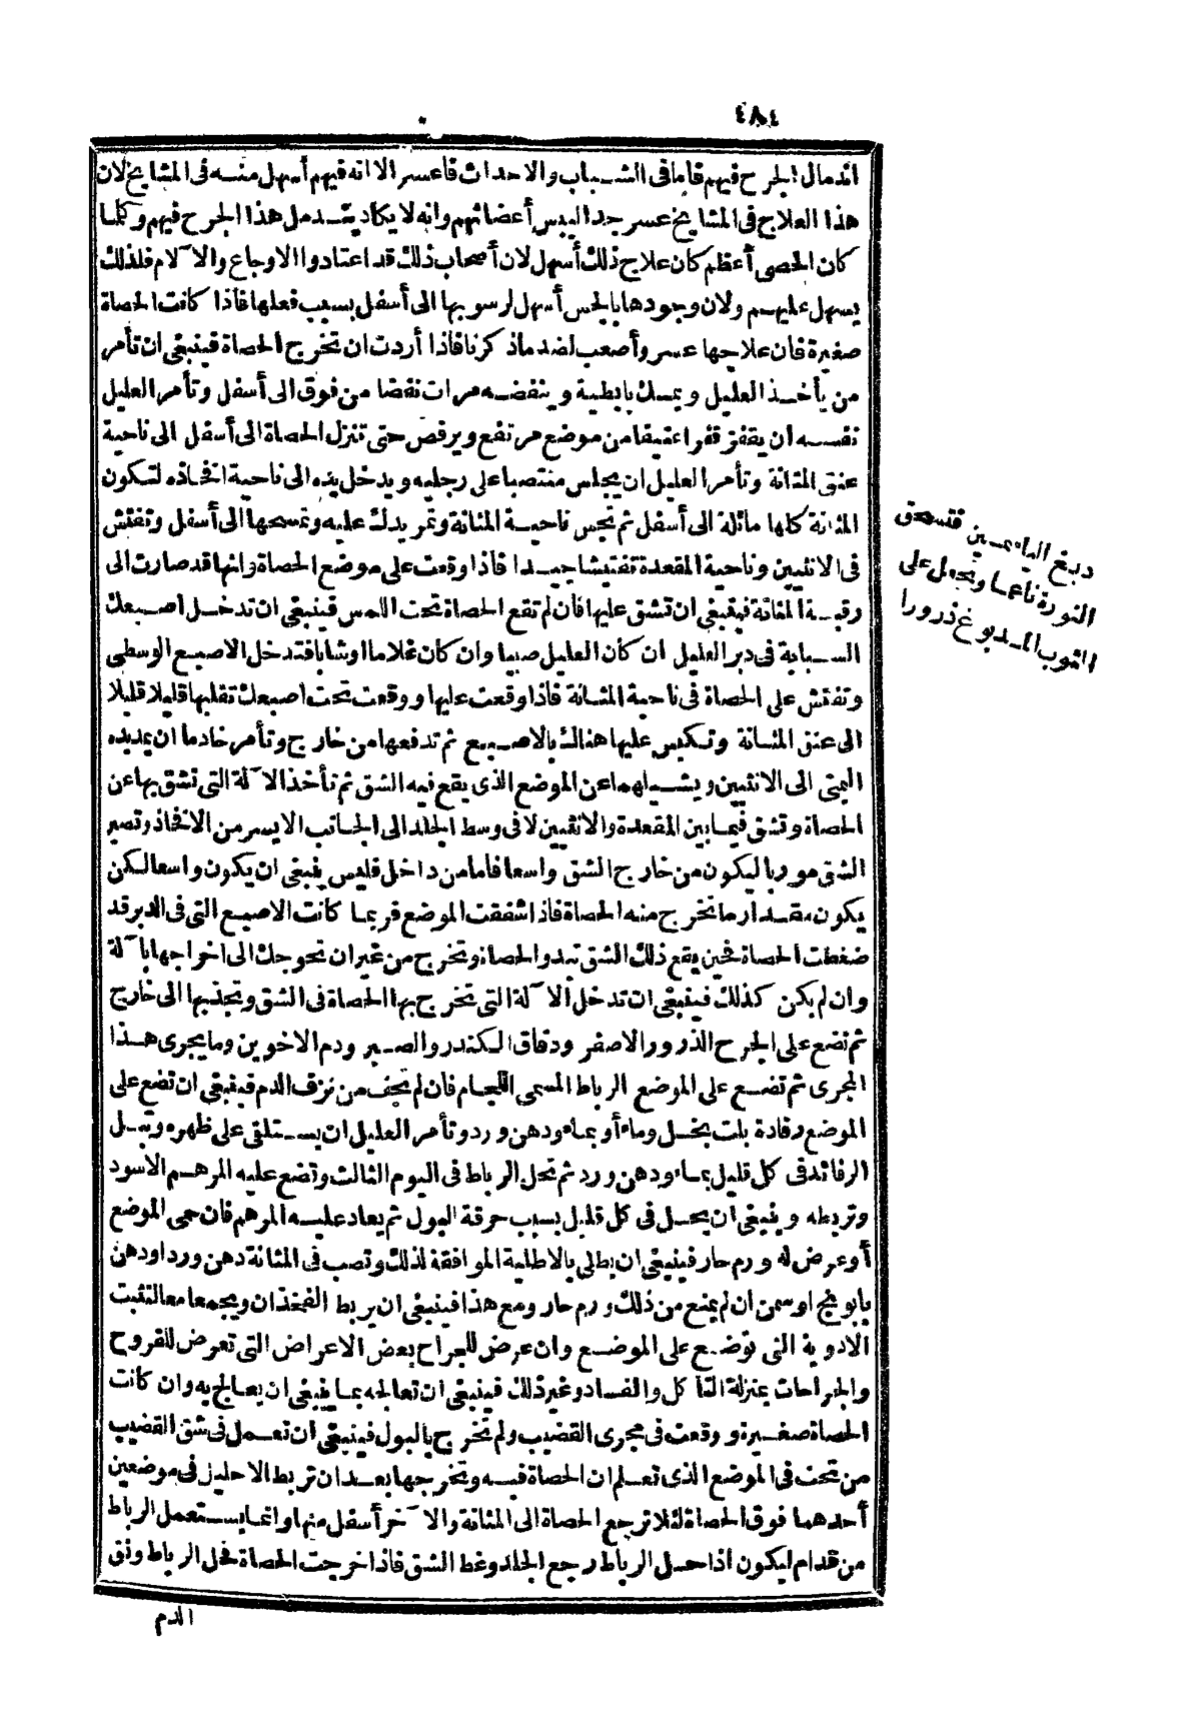 ٤٨٤
اندمال الجرح فيهم فاما فى الشباب والاحداث فاعسر الا انه فيهم أسهل منه فى المشايخ لان
هذا العلاج فى المشايخ عسر جدا ليبس أعضائهم وانه لا يكاد يندمل هذا الجرح فيهم وكلما
كان الحصى أعظم كان علاج ذلك أسهل لان أصحاب ذلك قد اعتادوا الاوجاع والآلام فلذلك
يسهل عليهم ولان وجودها بالحس أسهل لرسوبها الى أسفل بسبب فعلها فاذا كانت الحصاة
صغيرة فان علاجها عسر وأصعب لضد ماذكرنا فاذا أردت ان تخرج الحصاة فينبغى ان تأمر
من يأخذ العليل ويمسك بابطيه وينفضه مرات نفضا من فوق الى أسفل وتأمر العليل
نفسه ان يقفز قفزا عنيفا من موضع مرتفع ويرقص حتى تنزل الحصاة الى أسفل الى ناحية
عنق المثانة وتأمر العليل ان يجلس منتصبا على رجليه ويدخل يده الى ناحية افخاذه لتكون
المثانة كلها مائلة الى أسفل ثم تجس ناحية المثانة وتمر يدك عليه وتمسحها الى أسفل وتفتش
فى الانثيين وناحية المقعدة تفتيشا جيدا فاذا وقعت على موضع الحصاة وانها قد صارت الى
رقبة المثانة فينبغى ان تشق عليها فان لم تقع الحصاة تحت اللمس فينبغى ان تدخل اصبعك
السبابة فى دبر العليل ان كان العليل صبيا وان كان غلاما او شابا فتدخل الاصبع الوسطى
وتفتش على الحصاة فى ناحية المثانة فاذا وقعت عليها ووقعت تحت اصبعك تقلبها قليلا قليلا
الى عنق المثانة وتكبس عليها هنالك بالاصبع ثم تدفعها من خارج وتأمر خادما ان يمد يده
اليمنى الى الانثيين ويشيلهما عن الموضع الذى يقع فيه الشق ثم تأخذ الآلة التى تشق بها عن
الحصاة وتشق فيما بين المقعدة والانثيين لا فى وسط الجلد الى الجانب الايسر من الافخاذ وتصير
الشق موربا ليكون من خارج الشق واسعا فاما من داخل فليس ينبغى ان يكون واسعا لكن
يكون بمقدار ما تخرج منه الحصاة فاذا شققت الموضع فربما كانت الاصبع التى فى الدبر قد
ضغطت الحصاة فحين يقع ذلك الشق تبدو الحصاة وتخرج من غير ان تحوجك الى اخراجها بآلة
وان لم يكن كذلك فينبغى ان تدخل الآلة التى تخرج بها الحصاة فى الشق وتجذبها الى خارج
ثم تضع على الجرح الذرور الاصفر ودقاق الكندر والصبر ودم الاخوين وما يجرى هذا
المجرى ثم تضع على الموضع الرباط المسمى اللجام فان لم يخف من نزف الدم فينبغى ان تضع على
الموضع رفادة بلت بخل وماء أو بماء ودهن ورد وتأمر العليل ان يستلقى على ظهره وتبل
الرفائد فى كل قليل بماء ودهن ورد ثم تحل الرباط فى اليوم الثالث وتضع عليه المرهم الاسود
وتربطه وينبغى ان يحل فى كل قليل بسبب حرقة البول ثم يعاد عليه المرهم فان حمى الموضع
أو عرض له ورم حار فينبغى ان يطلى بالاطلية الموافقة لذلك وتصب فى المثانة دهن ورد او دهن
بابونج او سمن ان لم يمنع من ذلك ورم حار ومع هذا فينبغى ان يربط الفخذان ويجمعا معا لتثبت
الادوية التى توضع على الموضع وان عرض للجراح بعض الاعراض التى تعرض للقروح
والجراحات بمنزلة التآكل والفساد وغير ذلك فينبغى ان تعالجه بما ينبغى ان يعالج به وان كانت
الحصاة صغيرة ووقعت فى مجرى القضيب ولم تخرج بالبول فينبغى ان تعمل فى شق القضيب
من تحت فى الموضع الذى تعلم ان الحصاة فيه وتخرجها بعد ان تربط الاحليل فى موضعين
أحدهما فوق الحصاة لئلا ترجع الحصاة الى المثانة والآخر أسفل منها وانما يستعمل الرباط
من قدام ليكون اذا حل الرباط رجع الجلد وغط الشق فاذا خرجت الحصاة فحل الرباط ونق
الدم
دبغ الياسمين فتسحق
النورة ناعما ويجعل على
الثوب المدبوغ ذرورا